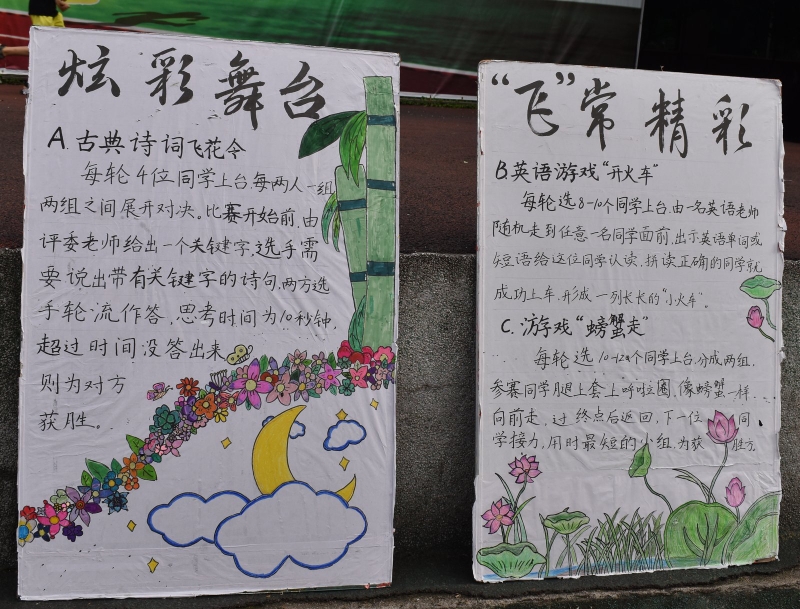 炫彩舞台
A.古典诗词飞花令
每轮4位同学上台,每两人一组
两组之间展开对决。比赛开始前,由
评委老师给出一个关键字,选手需
要说出带有关键字的诗句,两方选
手轮流作答,思考时间为10秒钟,
超过时间没答出来,
则为对方
获胜。
“飞”常精彩
B.英语游戏“开火车”
每轮选8-10个同学上台,由一名英语老师
随机走到任意一名同学面前,出示英语单词或
短语给这位同学认读,拼读正确的同学就
成功上车,形成一列长长的“小火车”。
C.游戏“螃蟹走”
每轮选10-12个同学上台,分成两组,
参赛同学腿上套上呼啦圈,像螃蟹一样
向前走,过终点后返回,下一位同
学接力,用时最短的小组,为获胜方。